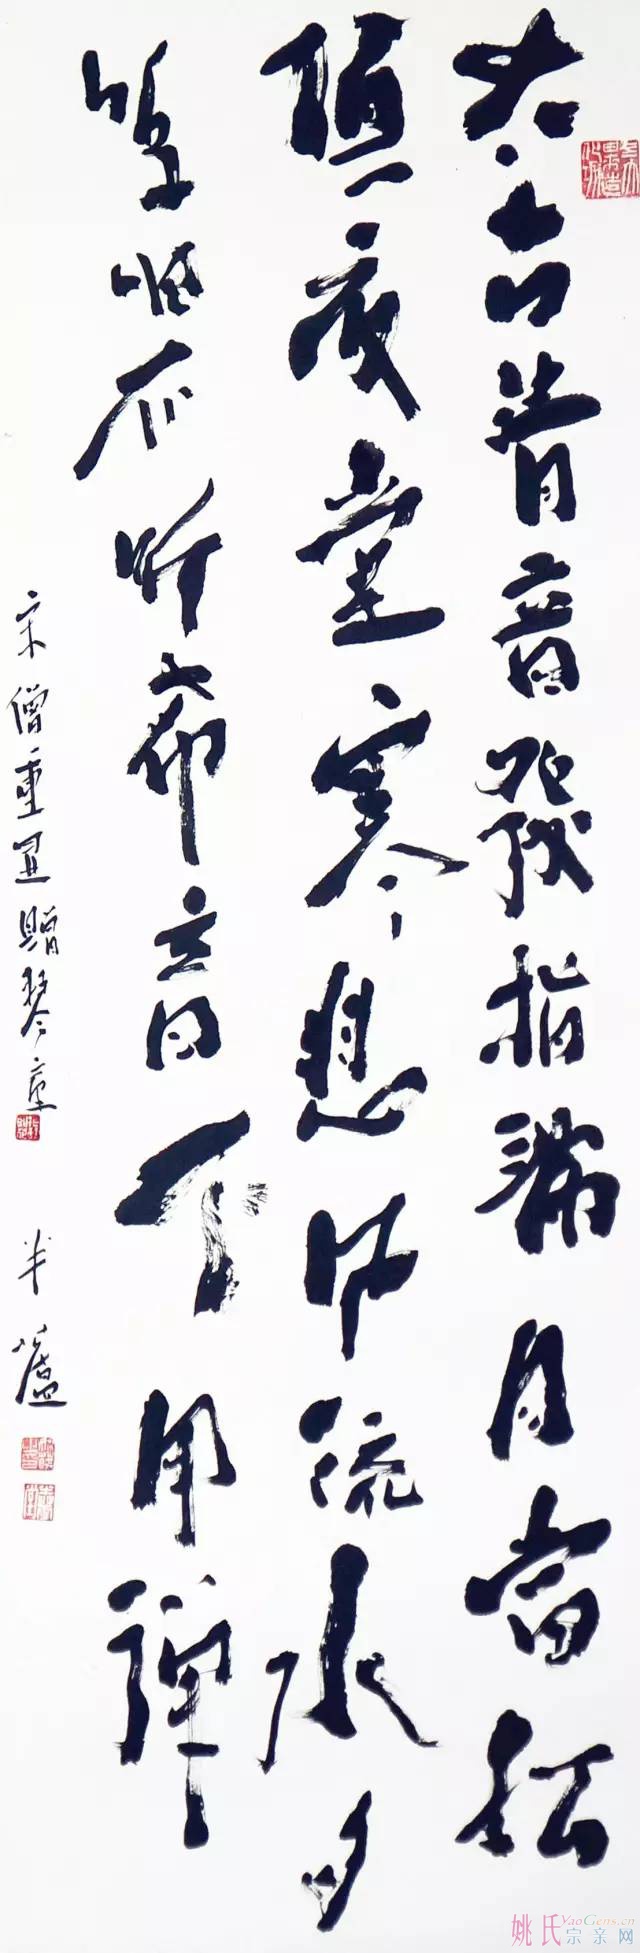 太古清音發指端月當松
頂夜堂寒悲风流水多
嗚咽不听希音不用彈
宋僧重显贈琴
半
姚氏宗亲网
YaoGens.cn